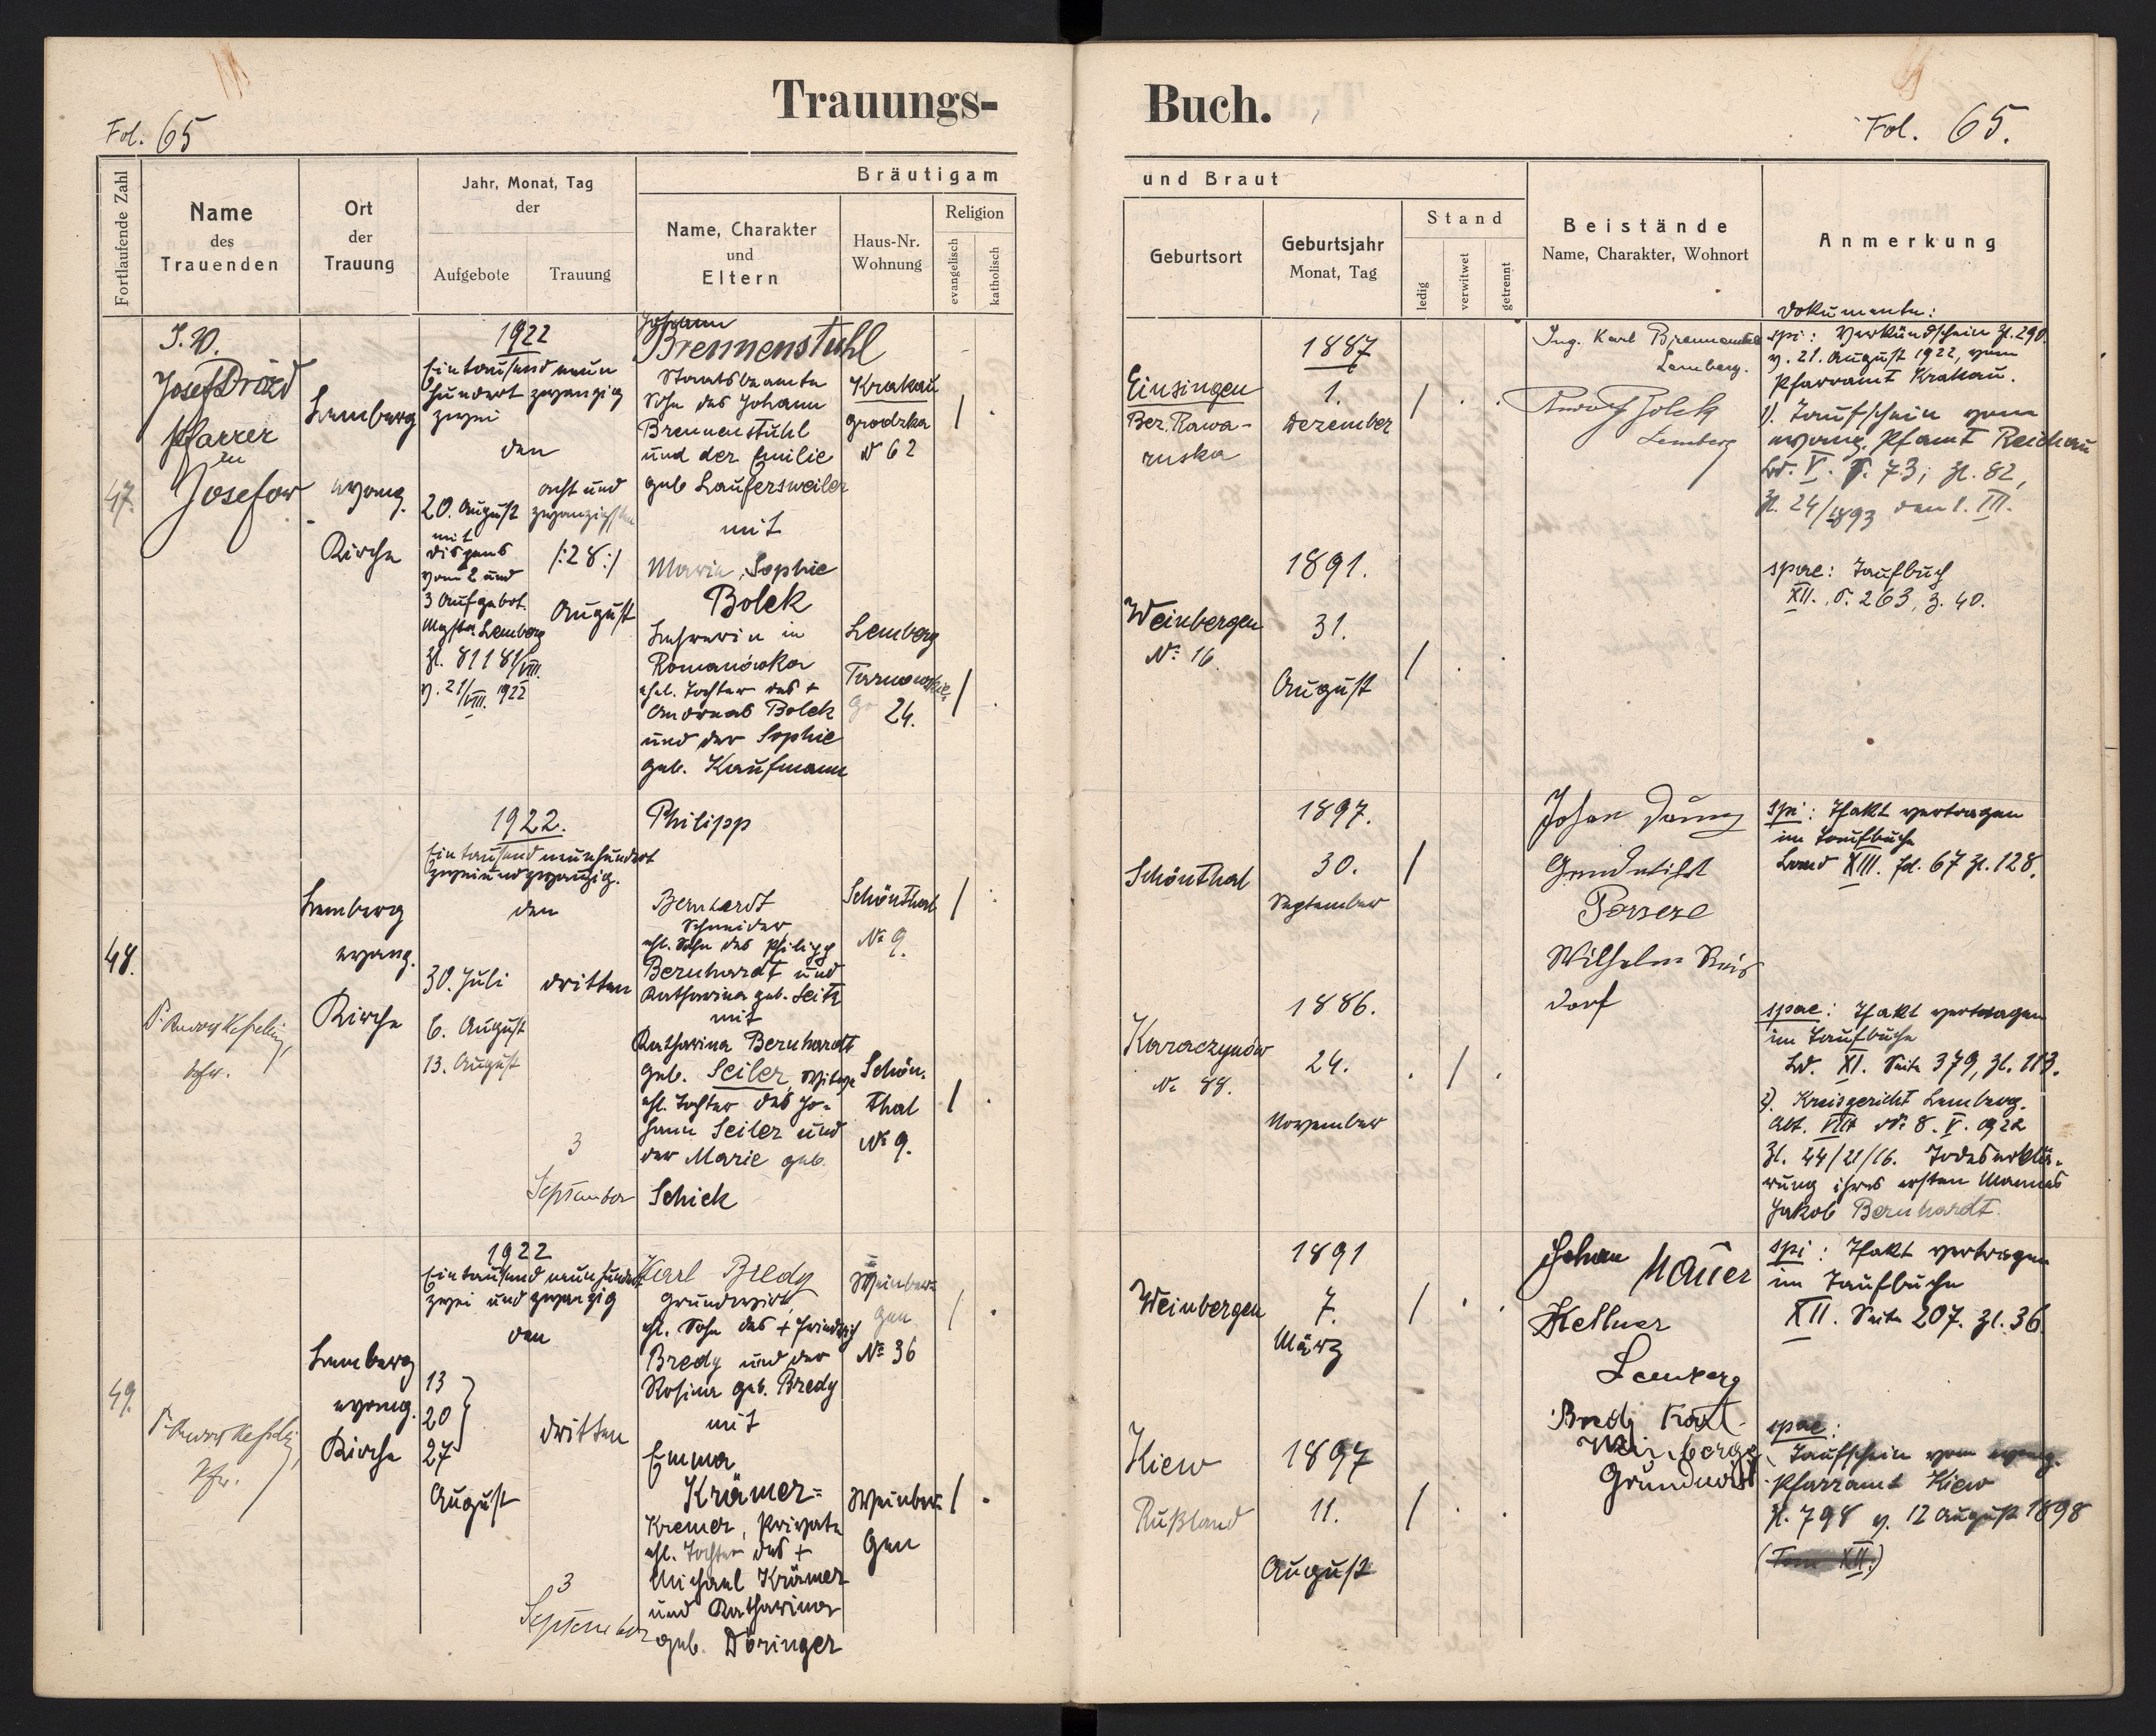 Trauungs-
Fol. 65
Fortlaufende Zahl
Name
des
Trauenden
Ort
der
Trauung
Jahr, Monat, Tag
der
Aufgebote
Trauung
Bräutigam
Name, Charakter
und
Eltern
Haus-Nr.
Wohnung
Religion
evangelisch
katholisch
47.
I.V.
Josef Drozd
Pfarrer
in
Josefow
Lemberg
evang.
Kirche
1922
Eintausend neun
hundert zwanzig
zwei
den
20. August
mit
Dispens
vom 2 und
3 Aufgebot.
Mgstr. Lemberg
Zl. 81181/VIII.
v. 21/VIII. 1922
acht und
zwanzigsten
/:28:/
August
Johann
Brennenstuhl
Staatsbeamte
Sohn des Johann
Brennenstuhl
und der Emilie
geb Laufersweiler
mit
Maria Sophie
Bolek
Lehrerin in
Romanówka
ehel. Tochter des +
Andreas Bolek
und der Sophie
geb. Kaufmann
Krakau
grodzka
N 62
Lemberg
Tarnowskie-
go 24.
48.
Lemberg
evang.
Kirche
1922.
Eintausend neunhundert
zweiundzwanzig.
den
30. Juli
6. August
13. August
dritten
3
September
Philipp
Bernhardt
Schneider
ehl. Sohn des Philipp
Bernhardt und
Katharina geb. Seitz
mit
Katharina Bernhardt
geb. Seiler, Witwe
ehl. Tochter des Jo-
hann Seiler und
der Marie geb.
Schick
Schönthal
No 9.
Schön-
thal
No 9.
49.
Lemberg
evang.
Kirche
1922
Eintausend neunhundert
zwei und zwanzig
den
13
20
27
August
dritten
3
September
Karl Bredy
Grundwirt,
ehl. Sohn des + Friedrich
Bredy und der
Rosina geb. Bredy
mit
Emma
Krämer=
Kremer, Private
ehl. Tochter des +
Michael Krämer
und Katharina
geb. Döringer
Weinber-
gen
No 36
Weinber-
gen
Buch.
Fol. 65.
und Braut
Geburtsort
Geburtsjahr
Monat, Tag
Stand
ledig
verwitwet
getrennt
Beistände
Name, Charakter, Wohnort
Anmerkung
Einsingen
Bez. Rawa-
ruska
1887
1.
Dezember
Ing. Karl Brennenstuhl
Lemberg.
Rudolf Bolek
Lemberg
Dokumente:
spi: Verkündschein Zl. 290.
v. 21. August 1922, vom
Pfarramt Krakau.
1). Taufschein vom
evang. Pfamt Reichau
Bd. V. S. 73, Zl. 82,
Zl. 24/1893 den 1. III.
Weinbergen
No 16.
1891.
31.
August
spae: Taufbuch
XII. S. 263, Z. 40.
Schönthal
1897.
30.
September
Johan
Wilhelm Reis
dorf
spi: Ifakt vertragen
im Taufbuche
Band XIII. fol. 67 Zl. 128.
Karaczynów
No 88.
1886.
24.
November
spae: Ifakt vertragen
im Taufbuche
Bd. XI. Seite 379, Zl. 113.
2). Kreisgericht Lemberg.
Abt. VIII dto 8. V. 1922
Zl. 44/21/16. Todeserklä-
rung ihres ersten Mannes
Jakob Bernhardt.
Weinbergen
1891
7.
März
Johan Mauer
Kellner
Lemberg
Bredy Karl
Weinbergen
Grundwirt
spi: Ifakt vertragen
im Taufbuche
XII. Seite 207. Zl. 36.
Kiew
Rußland
1897
11.
August
spae:
Taufschein vom evang.
Pfarramt Kiew
Zl. 798 v. 12 August 1898
(Tom XII.)